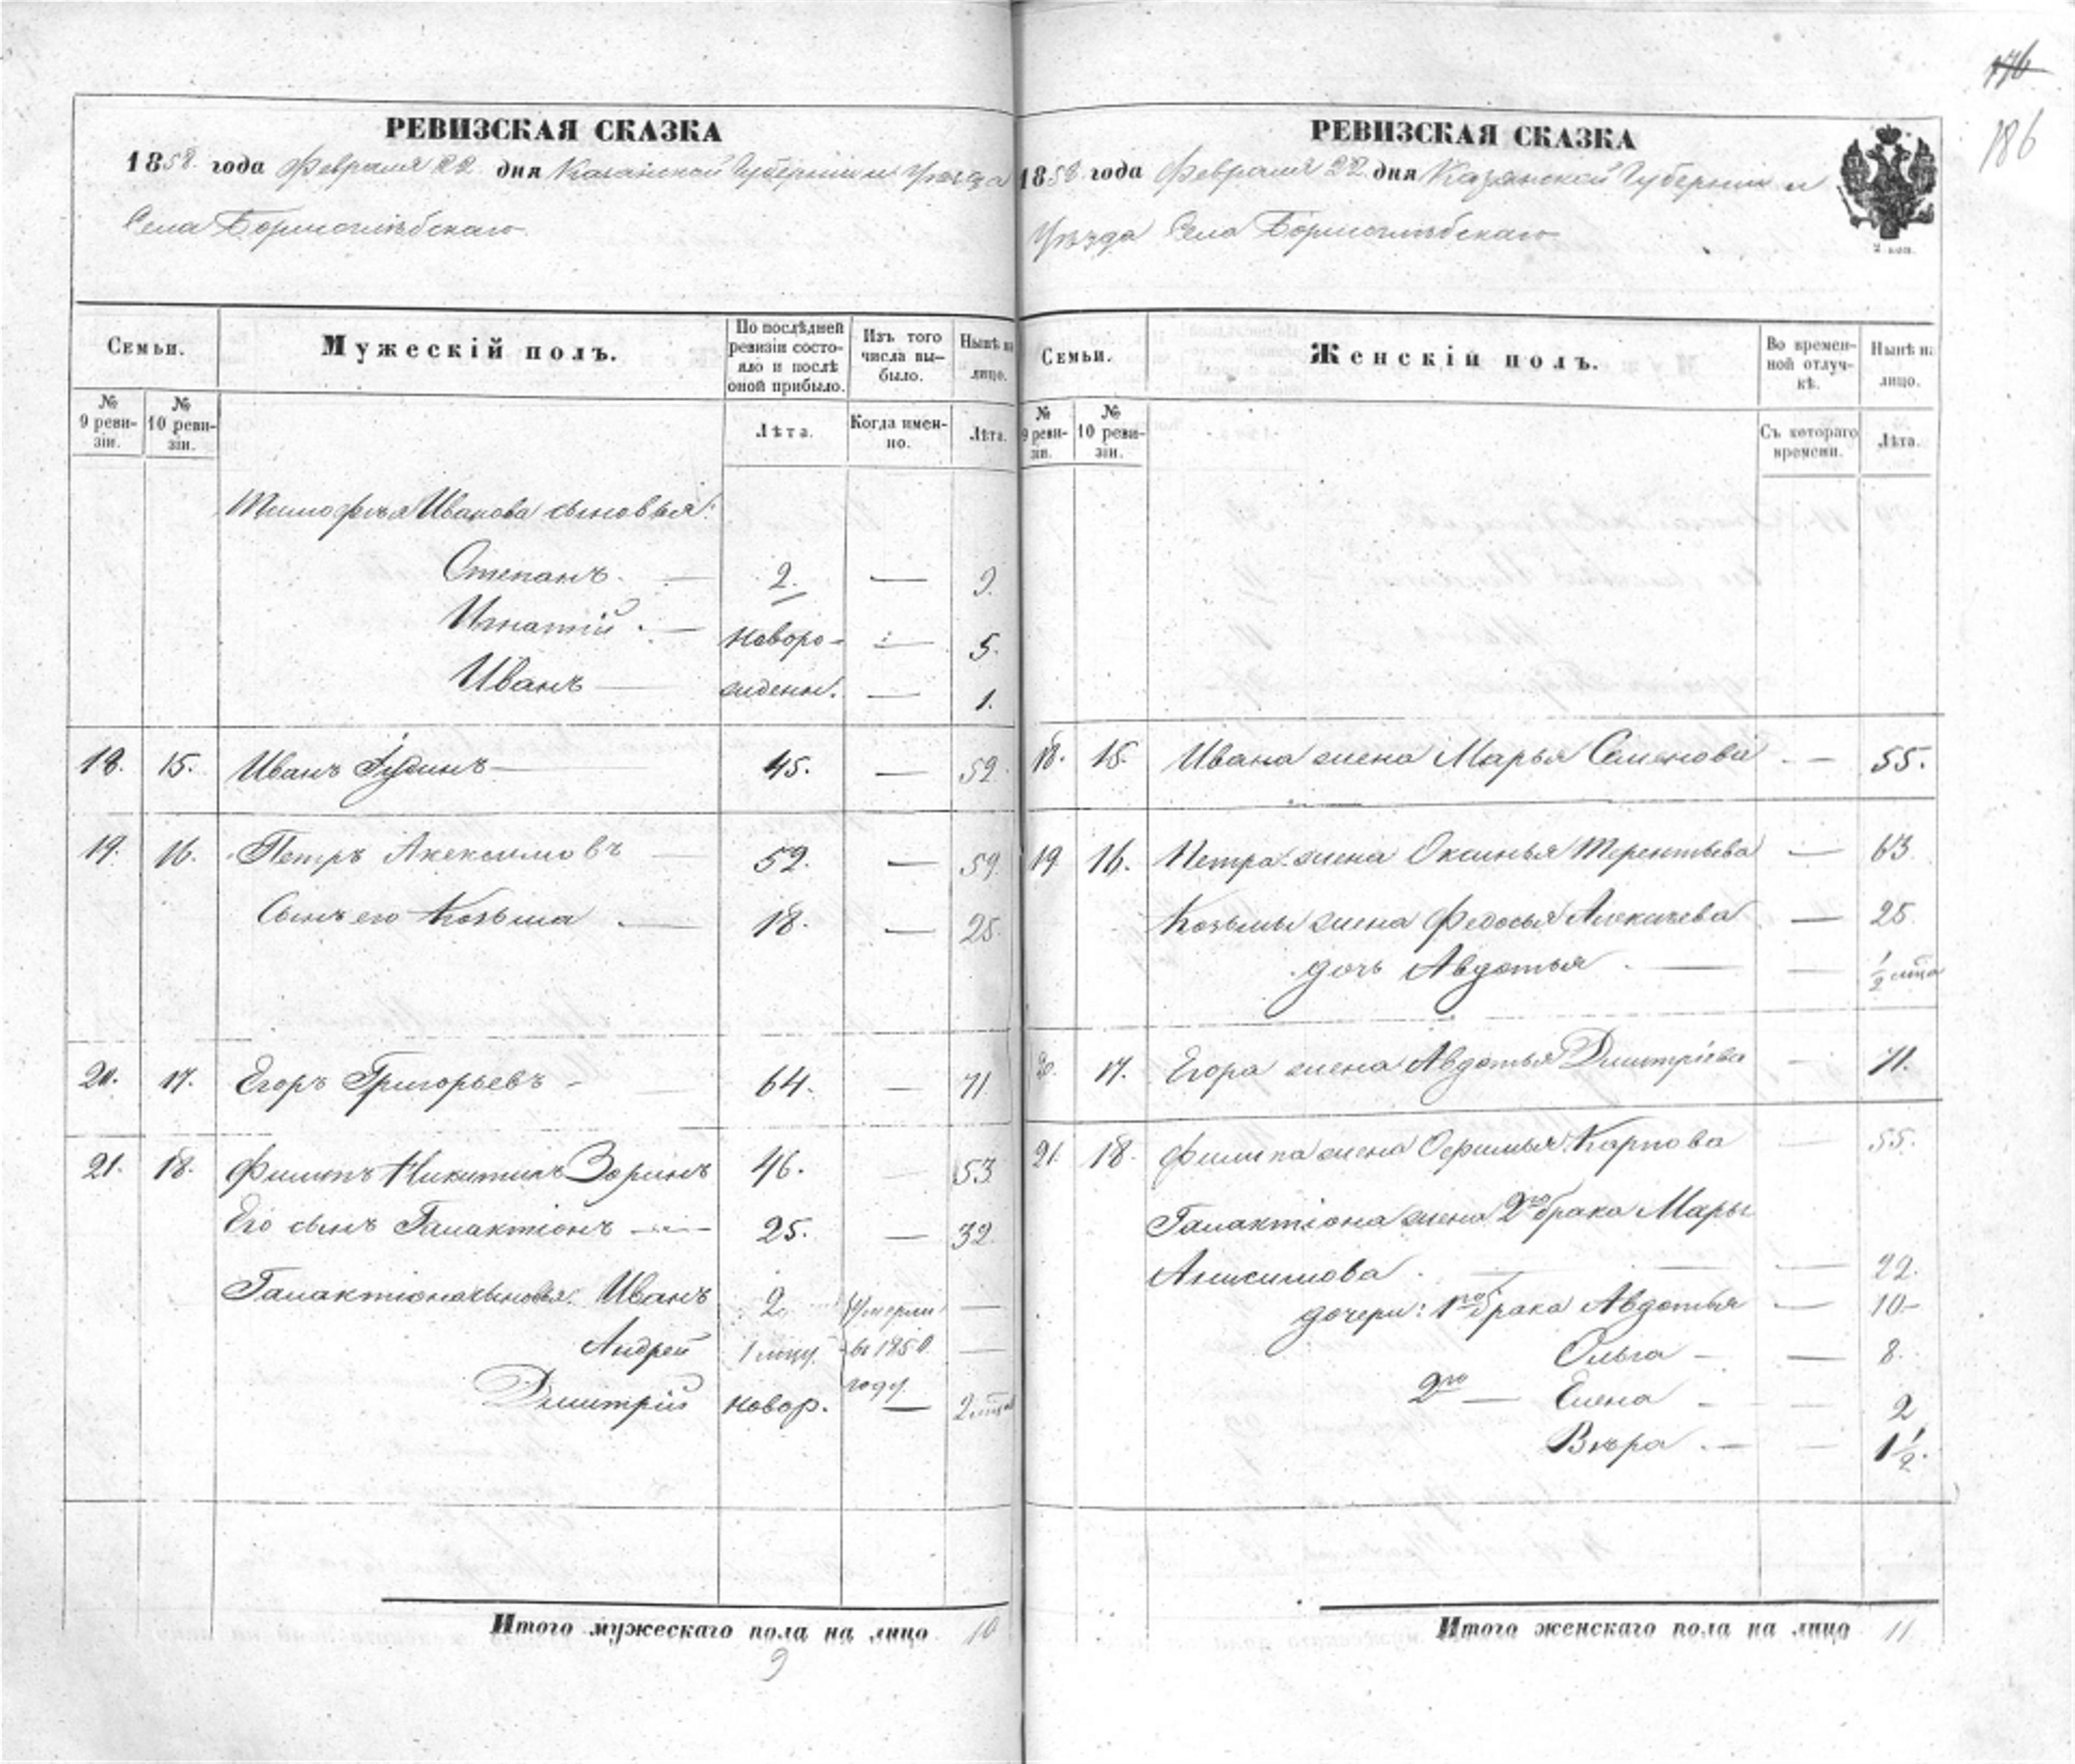 176
186
РЕВИЗСКАЯ СКАЗКА
1858 года Февраля 22 дня Казанской Губерніи и Уѣзда
Села Борисоглѣбскаго
Семьи.
Мужескій полъ.
По послѣдней ревизіи состояло и послѣ оной прибыло.
Изъ того числа выбыло.
Нынѣ на лицо.
№ 9 ревизіи.
№ 10 ревизіи.
Лѣта.
Когда именно.
Лѣта.
Тимофея Иванова сыновья:
Степанъ — 2. — 9.
Игнатій — новоро- — 5.
Иванъ — жденн. — 1.
18. 15. Иванъ Іудинъ — 45. — 52.
19. 16. Петръ — 52. — 59.
Сынъ его Козьма — 18. — 25.
20. 17. Егоръ Григорьевъ — 64. — 71
21. 18. Филипъ Никитинъ Зоринъ 46. — 53.
Его сынъ Галактіонъ — 25. — 32.
Галактіона сыновья. Иванъ 2. Умерли —
Андрей 1 въ 1850 —
году
Дмитрій новор. — 2
Итого мужескаго пола на лицо 10
9
РЕВИЗСКАЯ СКАЗКА
1858 года Февраля 22 дня Казанской Губерніи и
Уѣзда Села Борисоглѣбскаго
2 коп.
Семьи.
Женскій полъ.
Во временной отлучкѣ.
Нынѣ на лицо.
№ 9 ревизіи.
№ 10 ревизіи.
Съ котораго времени.
Лѣта.
18. 15. Ивана жена Марья Семенова — 55.
19 16. Петра жена Оксинья Терентьева — 63
Козьмы жена Федосья — 25
дочь Авдотья — 1/2
20. 17. Егора жена Авдотья Дмитріева — 71.
21. 18. Филипа жена Офимья Карпова — 55.
Галактіона жена 2го брака Марья
Анисимова — 22.
дочери: 1го брака Авдотья — 10
Ольга — 8.
2го — Елена — 2
Вѣра — 1 1/2.
Итого женскаго пола на лицо 11